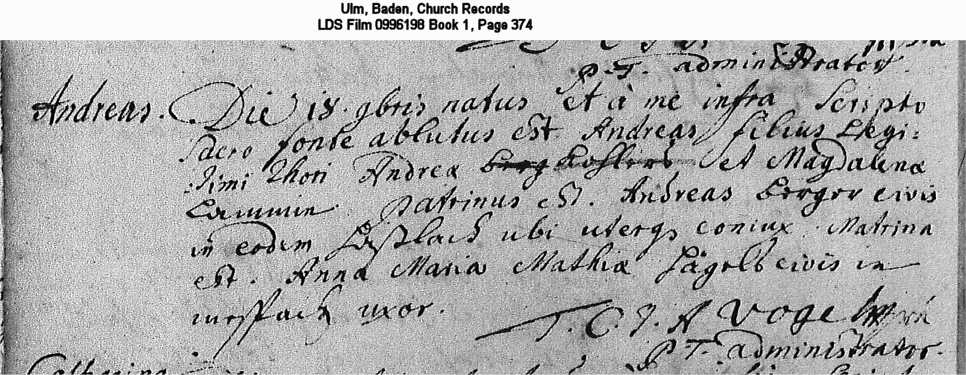 Ulm, Baden, Church Records
LDS Film 0996198 Book 1, Page 374
p. T. administrator.
Andreas. Die 18. 9bris natus et à me infra scripto
sacro fonte ablutus est Andreas filius Legi:
timi thori Andreæ et Magdalenæ
Lammin. patrinus est. Andreas Berger civis
in eodem ubi uterqs coniux. Matrina
est. Anna Maria Mathiæ civis in
uxor.
A Vogel
p T. administrator.
Catharina